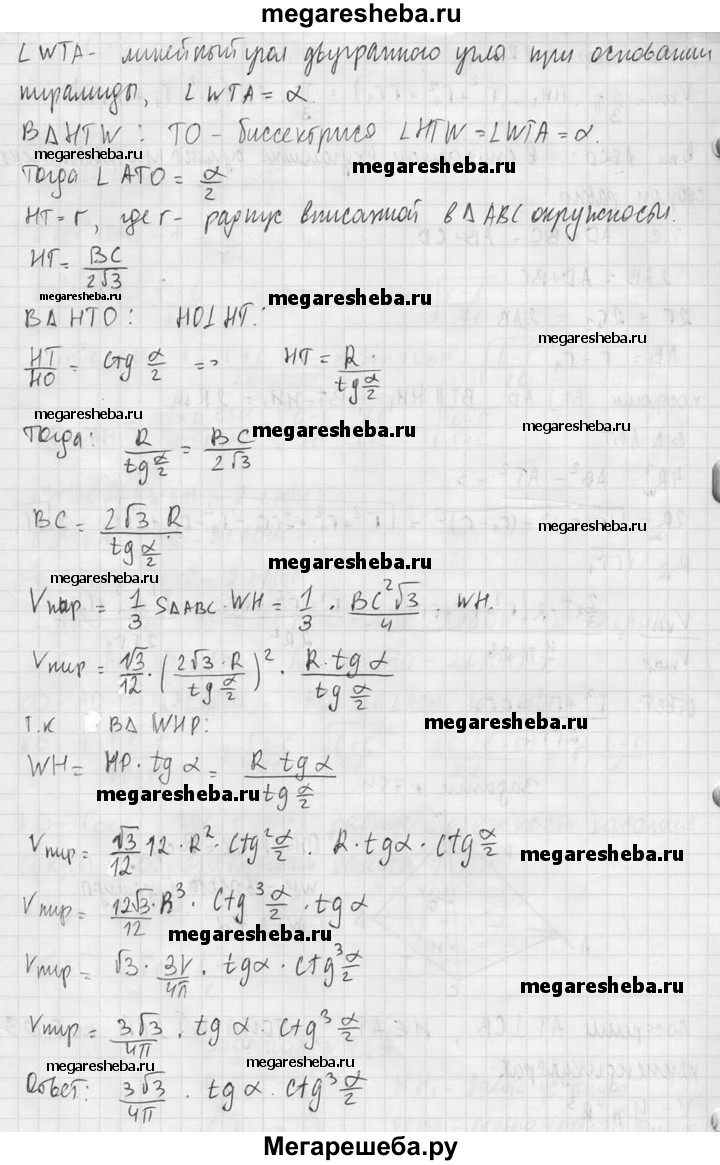 megaresheba.ru
∠WTA - линейный угол двугранного угла при основании
пирамиды, ∠WTA = α.
В ΔHTW: TO - биссектриса ∠HTW = ∠WTA = α.
megaresheba.ru megaresheba.ru
Тогда ∠ATO = α/2
HT = r, где r - радиус вписанной в ΔABC окружности.
HT = BC/2√3
megaresheba.ru megaresheba.ru
В Δ HTO: HO⊥HT.
megaresheba.ru
HT/HO = ctg α/2 => HT = R/tg α/2
megaresheba.ru megaresheba.ru
Тогда: R/tg α/2 = BC/2√3
megaresheba.ru
BC = 2√3·R/tg α/2
megaresheba.ru
megaresheba.ru
Vпир = 1/3 SΔABC · WH = 1/3 · BC²√3/4 · WH.
megaresheba.ru
Vпир = √3/12 · (2√3·R/tg α/2)² · R·tg α/tg α/2
Т.к В Δ WHP: megaresheba.ru
WH = HP · tg α = R tg α/tg α/2
megaresheba.ru
Vпир = √3/12 12 · R² · ctg² α/2 · R · tg α · ctg α/2
megaresheba.ru
Vпир = 12√3/12 · R³ · ctg³ α/2 · tg α
megaresheba.ru
Vпир = √3 · 3V/4π · tg α · ctg³ α/2
megaresheba.ru
Vпир = 3√3/4π · tg α · ctg³ α/2
megaresheba.ru megaresheba.ru
Ответ: 3√3/4π · tg α · ctg³ α/2
megaresheba.ru
Мегарешеба.ру